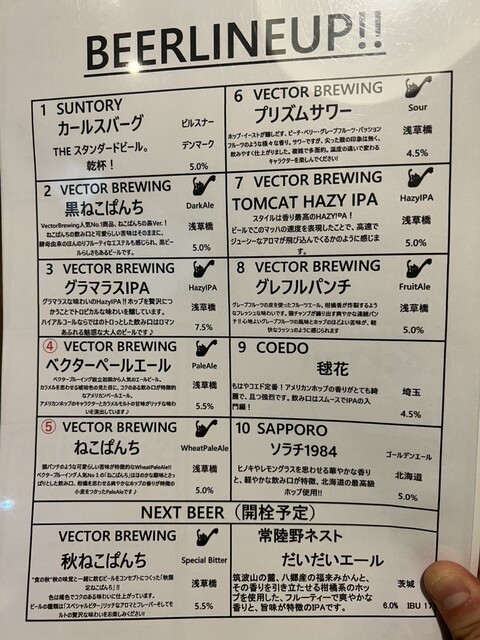 BEERLINEUP!!
1 SUNTORY
カールスバーグ
ピルスナー
THE スタンダードビール。
乾杯！
デンマーク
5.0%
2 VECTOR BREWING
黒ねこぱんち
DarkAle
VectorBrewing人気No.1商品、ねこぱんちの黒Ver.！
ねこぱんちの飲み口と可愛らしい苦味はそのままに、
酵母由来のほんのりフルーティなエステルも感じられ、黒ビー
ルらしさもあるビールです。
浅草橋
5.0%
3 VECTOR BREWING
グラマラスIPA
HazyIPA
グラマラスな味わいのHazyIPA!!ホップを贅沢につ
かうことでトロピカルな味わいを醸しています。
ハイアルコールならではのトロっとした飲み口はロマン
あふれる魅惑な大人のビールです♪
浅草橋
7.5%
④ VECTOR BREWING
ベクターペールエール
PaleAle
ベクターブルーイング設立初期から人気のエールビール。
カラメルを思わせる琥珀色の見た目に、コクのある飲み口が特徴的
なアメリカンペールエール。
アメリカンホップのキャラクターとカラメルモルトの甘味がリッチな味わ
いを演出しています♪
浅草橋
5.5%
⑤ VECTOR BREWING
ねこぱんち
WheatPaleAle
猫パンチのような可愛らしい苦味が特徴的なWheatPaleAle!!
ベクターブルーイング人気No１の「ねこぱんち」はほのかな酸味とさっ
ぱりとした飲み口、柑橘を思わせる爽やかなホップの香りが特徴
の小麦をつかったPaleAleです♪
浅草橋
5.0%
6 VECTOR BREWING
プリズムサワー
Sour
ホップ・イーストが醸しだす、ピーチ・ベリー・グレープフルーツ・パッション
フルーツのような様々な香り。サワーですが、尖った酸の印象は無く、
飲みやすく仕上がりました。複雑で多面的。温度の違いで変わる
キャラクターを楽しんでください!
浅草橋
4.5%
7 VECTOR BREWING
TOMCAT HAZY IPA
HazyIPA
スタイルは香り最高のHAZYIPA！
ビールでこのマッハの速度を表現したことで、高速で
ジューシーなアロマが飛び込んでくるかのように感じま
す。
浅草橋
5.0%
8 VECTOR BREWING
グレフルパンチ
FruitAle
グレープフルーツの皮を使ったフルーツエール。柑橘香が炸裂するよう
なフレッシュな味わいです。猫チャンプが繰り出す爽やかな連続パン
チ!!心地よいグレープフルーツの風味とホップのほどよい苦味が、軽
快なラッシュのように感じられます
浅草橋
5.0%
9 COEDO
毬花
もはやコエド定番！アメリカンホップの香りがとても綺
麗で、且つ強烈です。飲み口はスムースでIPAの入
門編！
埼玉
4.5%
10 SAPPORO
ソラチ1984
ゴールデンエール
ヒノキやレモングラスを思わせる華やかな香り
と、軽やかな飲み口が特徴、北海道の最高級
ホップ使用!!
北海道
5.0%
NEXT BEER（開栓予定）
VECTOR BREWING
秋ねこぱんち
Special Bitter
"食の秋"秋の味覚と一緒に飲むビールをコンセプトにつくった「秋限
定ねこぱんち」!!
色は褐色でコクのある味わいに仕上がっています。
ビールの種類は「スペシャルビター」リッチなアロマとフレーバーそしてモ
ルトの贅沢な味わいをお楽しみください!
浅草橋
5.5%
常陸野ネスト
だいだいエール
筑波山の麓、八郷産の福来みかんと、
その香りを引き立たせる柑橘系のホッ
プを使用した、フルーティーで爽やかな
香りと、旨味が特徴のIPAです。
茨城
6.0% IBU 17